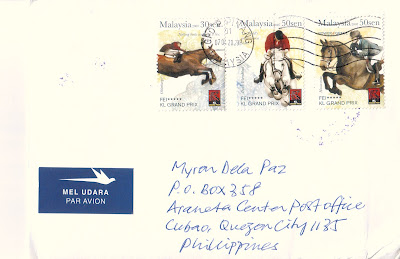 Malaysia 30sen
Malaysia 50sen
Malaysia 50sen
FEI*****
KL GRAND PRIX
FEI*****
KL GRAND PRIX
FEI*****
KL GRAND PRIX
MEL UDARA
PAR AVION
Myron Dela Paz
P.O. BOX 358
Araneta Center Post office
Cubao, Quezon City 1135
Philippines